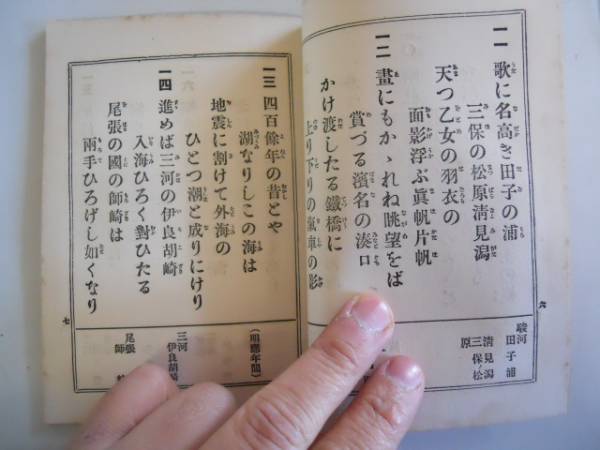 一一 歌に名高き田子の浦
三保の松原淸見潟
天つ乙女の羽衣の
面影浮ぶ眞帆片帆
一二 畫にもかゝれぬ眺望をば
賞づる濱名の湊口
かけ渡したる鐵橋に
上り下りの滊車の影
駿河
田子浦
淸見潟
三保ノ松
原
六
一三 四百餘年の昔とや
湖なりしこの海は
地震に割けて外海の
ひとつ潮と成りにけり
一四 進めば三河の伊良胡崎
入海ひろく對ひたる
尾張の國の師崎は
兩手ひろげし如くなり
(明應年間)
三河
伊良胡崎
尾張
師
七